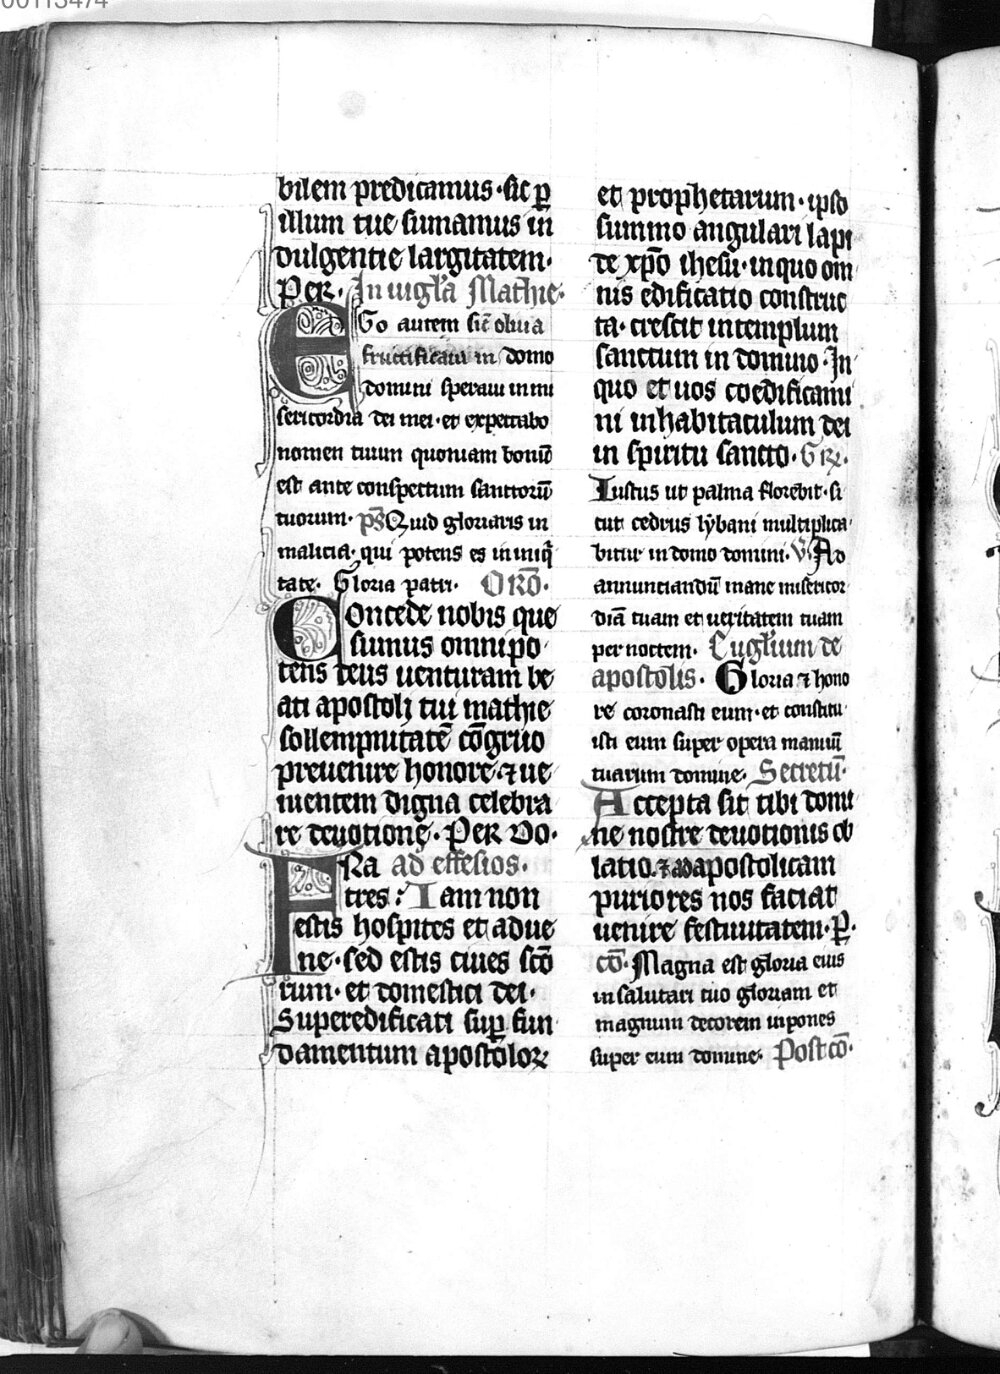 00113474
bilem predicamus · sic ꝑ
illum tue sumamus in
dulgentie largitatem ·
Per · In uigl̄a Mathie ·
EGo autem sic̄ oliua
fructificaui in domo
domini speraui in mi
sericordia dei mei · et expectabo
nomen tuum quoniam bonū
est ante conspectum sanctorū
tuorum · p̄s Quid gloriaris in
malicia · qui potens es in iniq̄
tate · Gloria patri · Orō ·
Concede nobis que
sumus omnipo
tens deus uenturam be
ati apostoli tui mathie
sollempnitatē cōgruo
preuenire honore · ⁊ ue
nientem digna celebra
re deuotione · Per Do ·
FRa ad effesios ·
tres : Iam non
estis hospites et adue
ne · sed estis ciues scō
rum · et domestici dei ·
Superedificati suꝑ fun
damentum apostoloꝝ
et prophetarum · ipso
summo angulari lapi
de xp̄o ihesu · in quo om
nis edificatio construc
ta · crescit in templum
sanctum in domino · In
quo et uos coedificami
ni in habitaculum dei
in spiritu sancto · Gr̄ ·
Iustus ut palma florebit · si
cut cedrus lybani multiplica
bitur in domo domini · V̄ Ad
annunciandū mane misericor
diā tuam et ueritatem tuam
per noctem · Eugl̄ium de
apostolis · Gloria ⁊ hono
re coronasti eum · et constitu
isti eum super opera manuū
tuarum domine · Secretū ·
Accepta sit tibi domi
ne nostre deuotionis ob
latio · ⁊ ad apostolicam
puriores nos faciat
uenire festiuitatem · ꝑ ·
cō · Magna est gloria eius
in salutari tuo gloriam et
magnum decorem inpones
super eum domine · Post cō ·